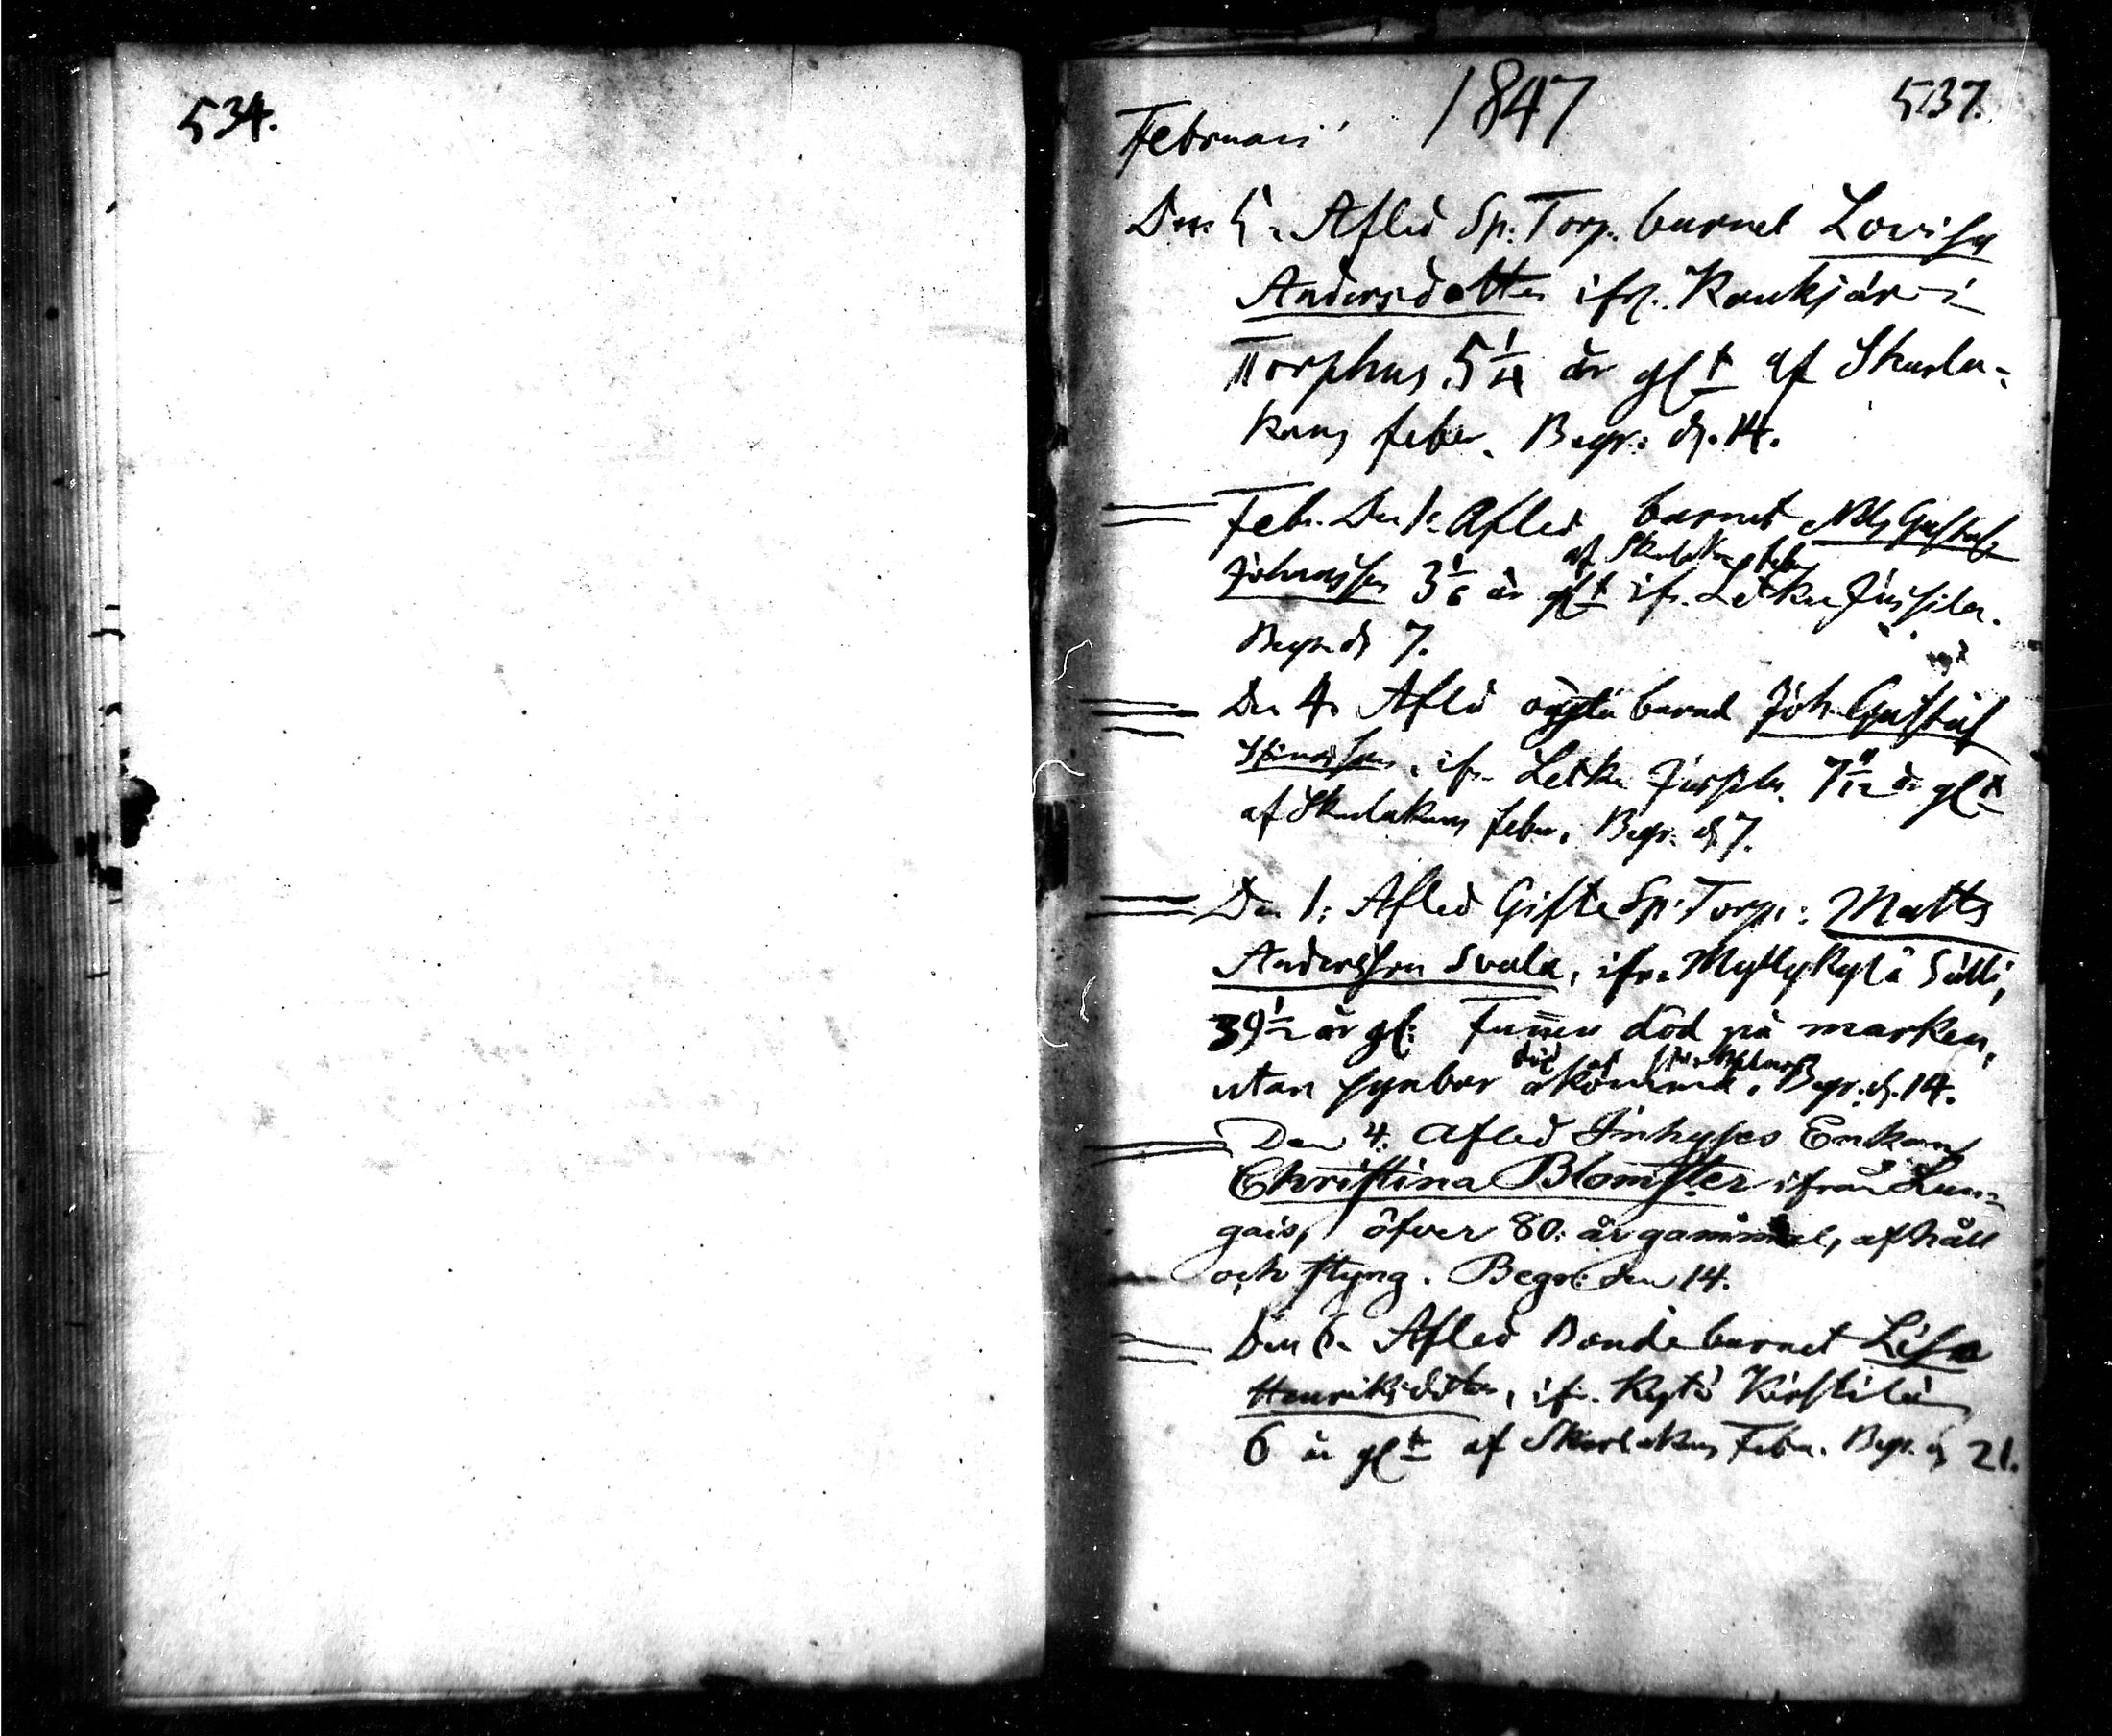 534.
1847
537.
Februari
Den 5. Afled Sp: Torp. barnet Lovisa
Andersdotter ifr. Kaukjär i
Torphus 5 1/4 år glt af Skarla-
kans feber. Begr: d. 14.
Feb. Den 1. Afled barnet Nils Gustaf
af Skarlakans feber
Johansson 3 1/6 år glt ifr. Letku Jussila.
Begr. d. 7.
Den 4. Afled oägta barnet Joh. Gustaf
ifr. Letku Jussila. 7 11/12 år glt
af Skarlakans feber. Begr. d. 7.
Den 1. Afled Gifte Sp. Torp. Matts
Andersson Svala, ifr. Myllykylä Sälli,
39 1/2 år gl: Funnen död på marken,
död af
utan synbar åkomma. Begr: d. 14.
Den 4. Afled Inhyses Enkan
Christina Blomster ifrån Lun-
gais, öfver 80. år gammal, af håll
och styng. Begr: den 14.
Den 6. Afled Bondebarnet Lisa
Henriksdotter, ifr. Kytö Kirstilä
6 år glt af Skarlakans Feber. Begr. d. 21.